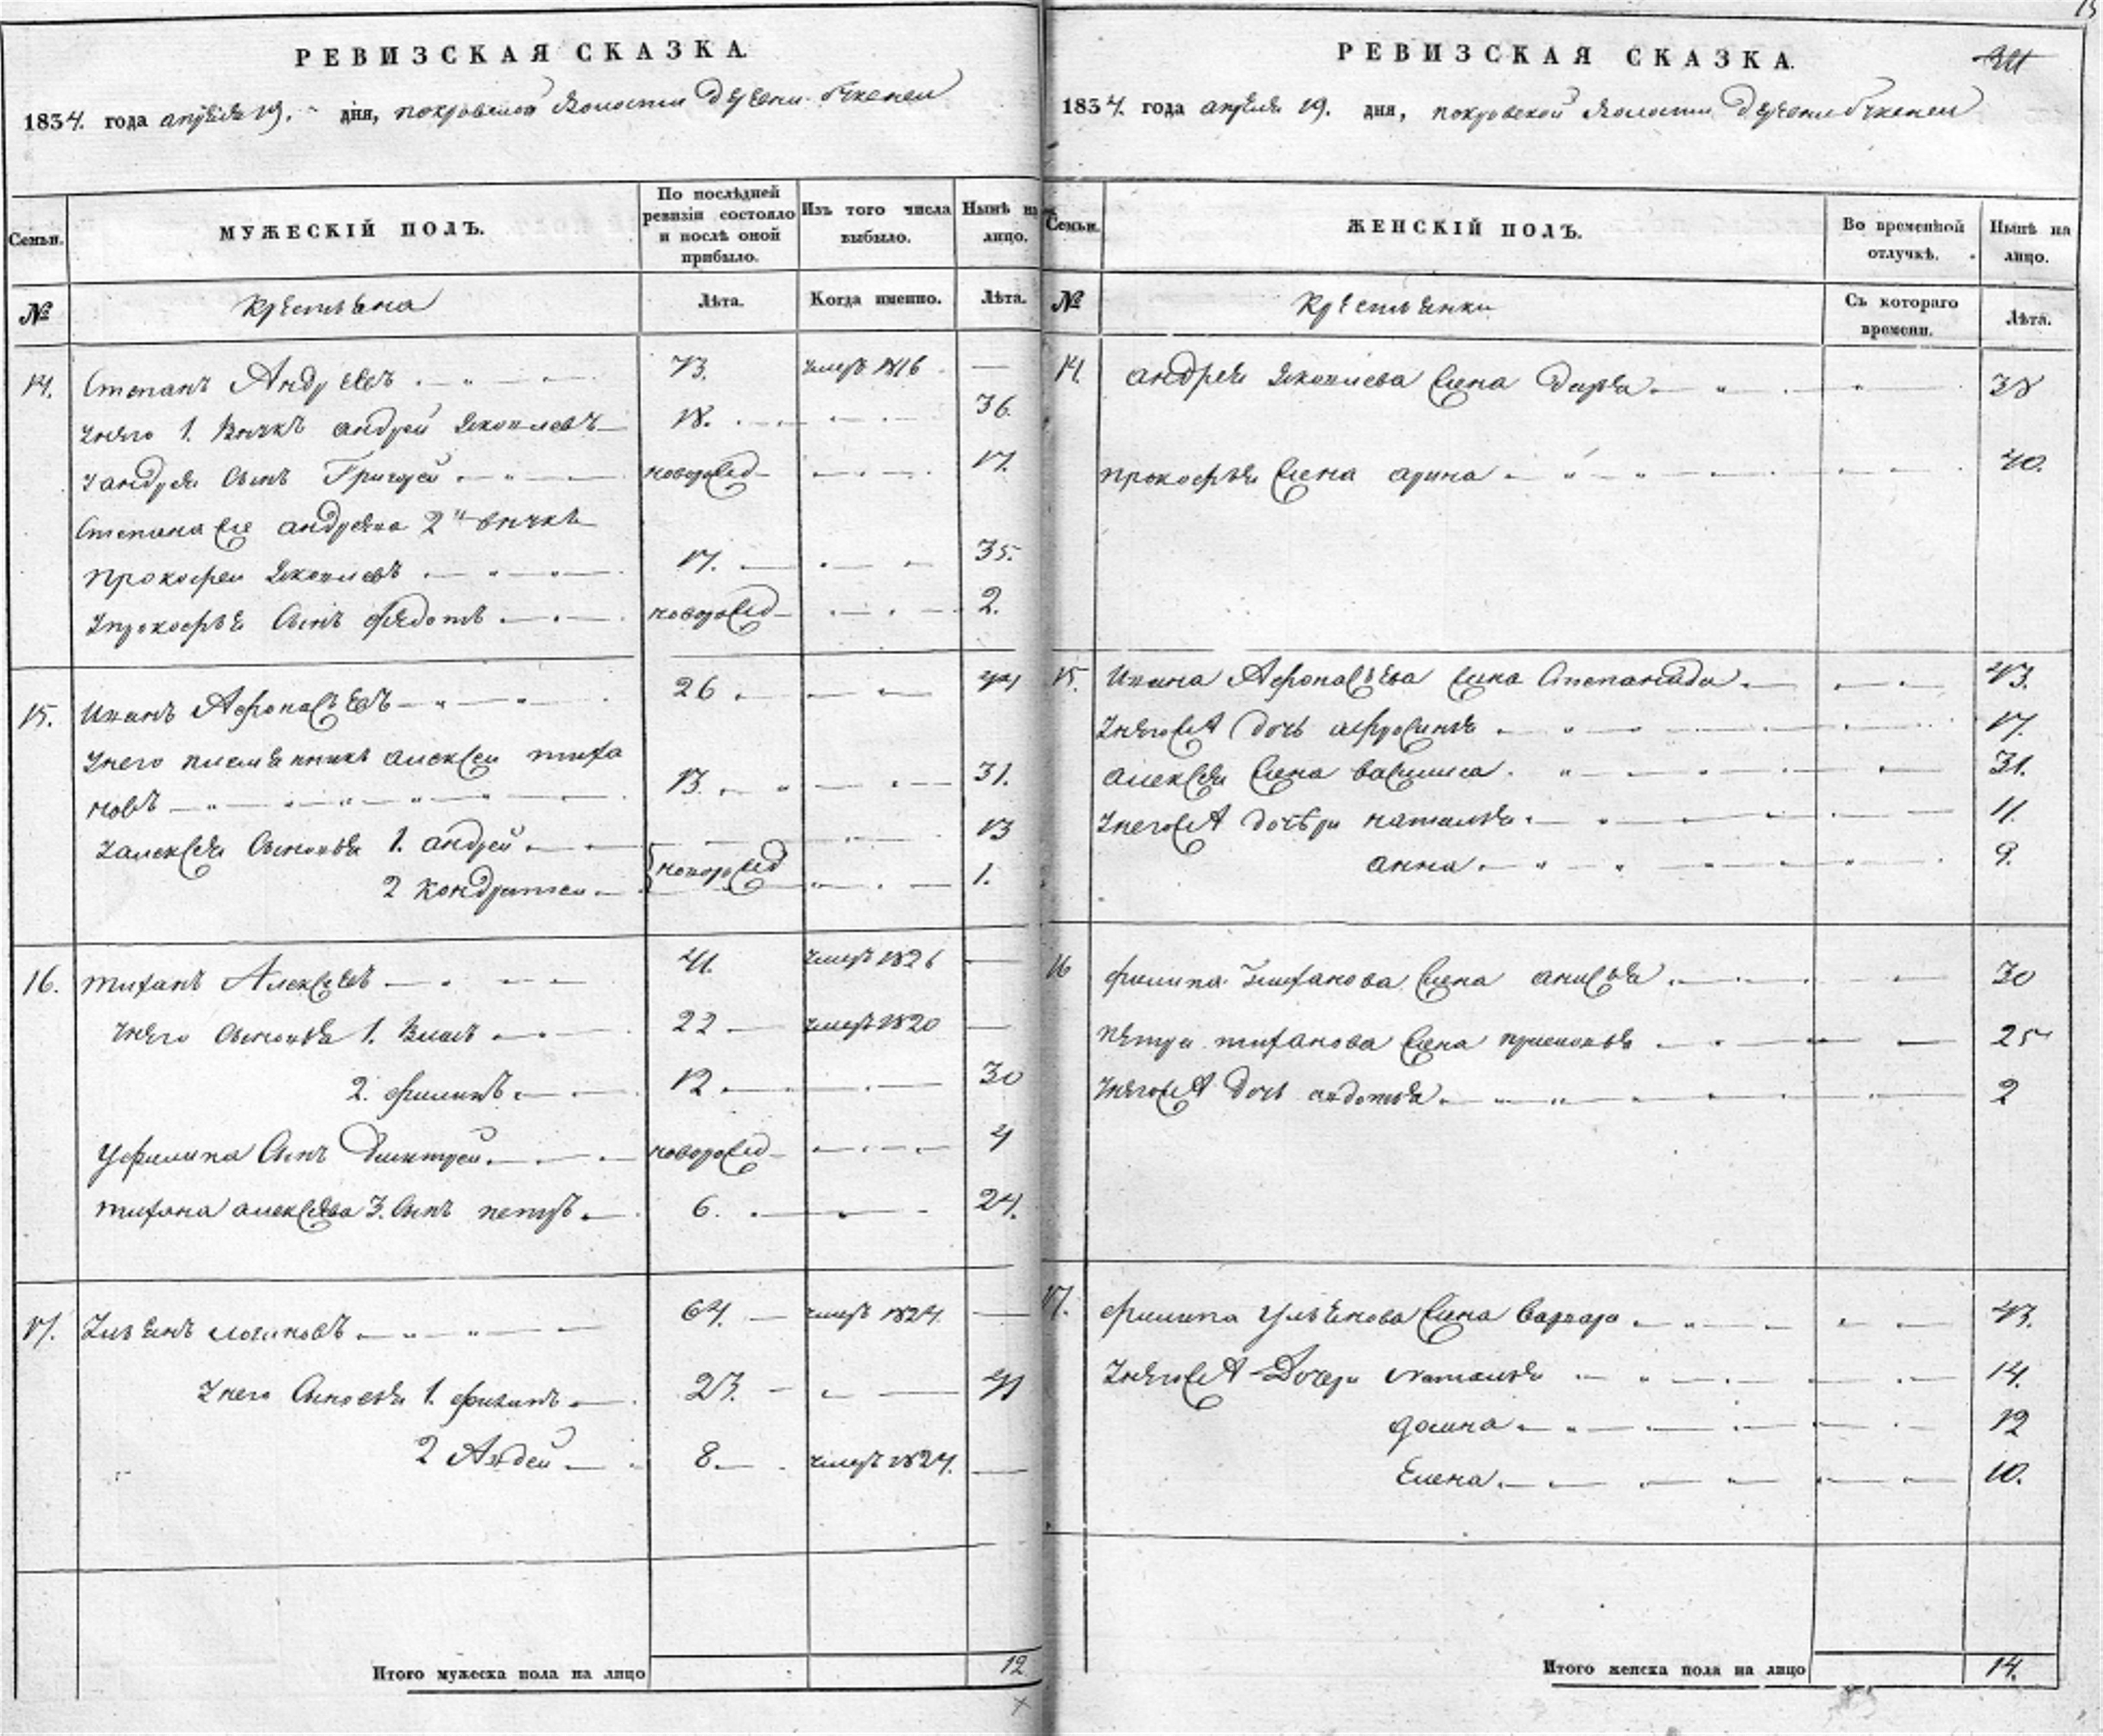 РЕВИЗСКАЯ СКАЗКА.
1834. года апреля 19. дня, покровской волости деревни
Семьи.
МУЖЕСКІЙ ПОЛЪ.
По послѣдней ревизіи состояло и послѣ оной прибыло.
Изъ того числа выбыло.
Нынѣ на лицо.
№
Крестьяна
Лѣта.
Когда именно.
Лѣта.
14. Степанъ Андреевъ 73. умеръ 1816 —
у него 1. внукъ андрей яковлевъ 18. 36.
у андрея сынъ Григорей новорожд 17.
Степана же андреева 2й внукъ
прокофеи яковлевъ 17. 35.
у прокофья сынъ федотъ новорожд 2.
15. Иванъ Афонасьевъ 26
у него племянникъ алексеи тифа
новъ 13. 31.
у алексея сыновья 1. андрей 13
2 кондратеи новорожд 1.
16. тифанъ Алексеевъ 41. умеръ 1826 —
у него сыновья 1. Власъ 22 умеръ 1820 —
2. филипъ 12 30
у филипа сынъ Дмитрей новорожд 4
тифана алексеева 3. сынъ петръ 6. 24.
17. Ульянъ логиновъ 64. умеръ 1824. —
у него сыновья 1. филипъ 23. 41
2 Авдей 8. умеръ 1824. —
Итого мужеска пола на лицо 12
РЕВИЗСКАЯ СКАЗКА.
1834. года апреля 19. дня, покровской волости деревни
Семьи.
ЖЕНСКІЙ ПОЛЪ.
Во временной отлучкѣ.
Нынѣ на лицо.
№
Крестьянки
Съ котораго времени.
Лѣта.
14. андрея яковлева жена Дарья 38
прокофья жена арина 40.
15. Ивана Афонасьева жена Степанида 43.
у него жъ дочь афросинья 17.
алексея жена василиса 31.
у него жъ дочери наталья 11.
анна 9.
16 филипа тифанова жена анисья 30
петра тифанова жена 25
у него жъ дочь авдотья 2
17. филипа ульянова жена варвара 43.
у него жъ Дочери наталья 14.
12
Елена 10.
Итого женска пола на лицо 14.